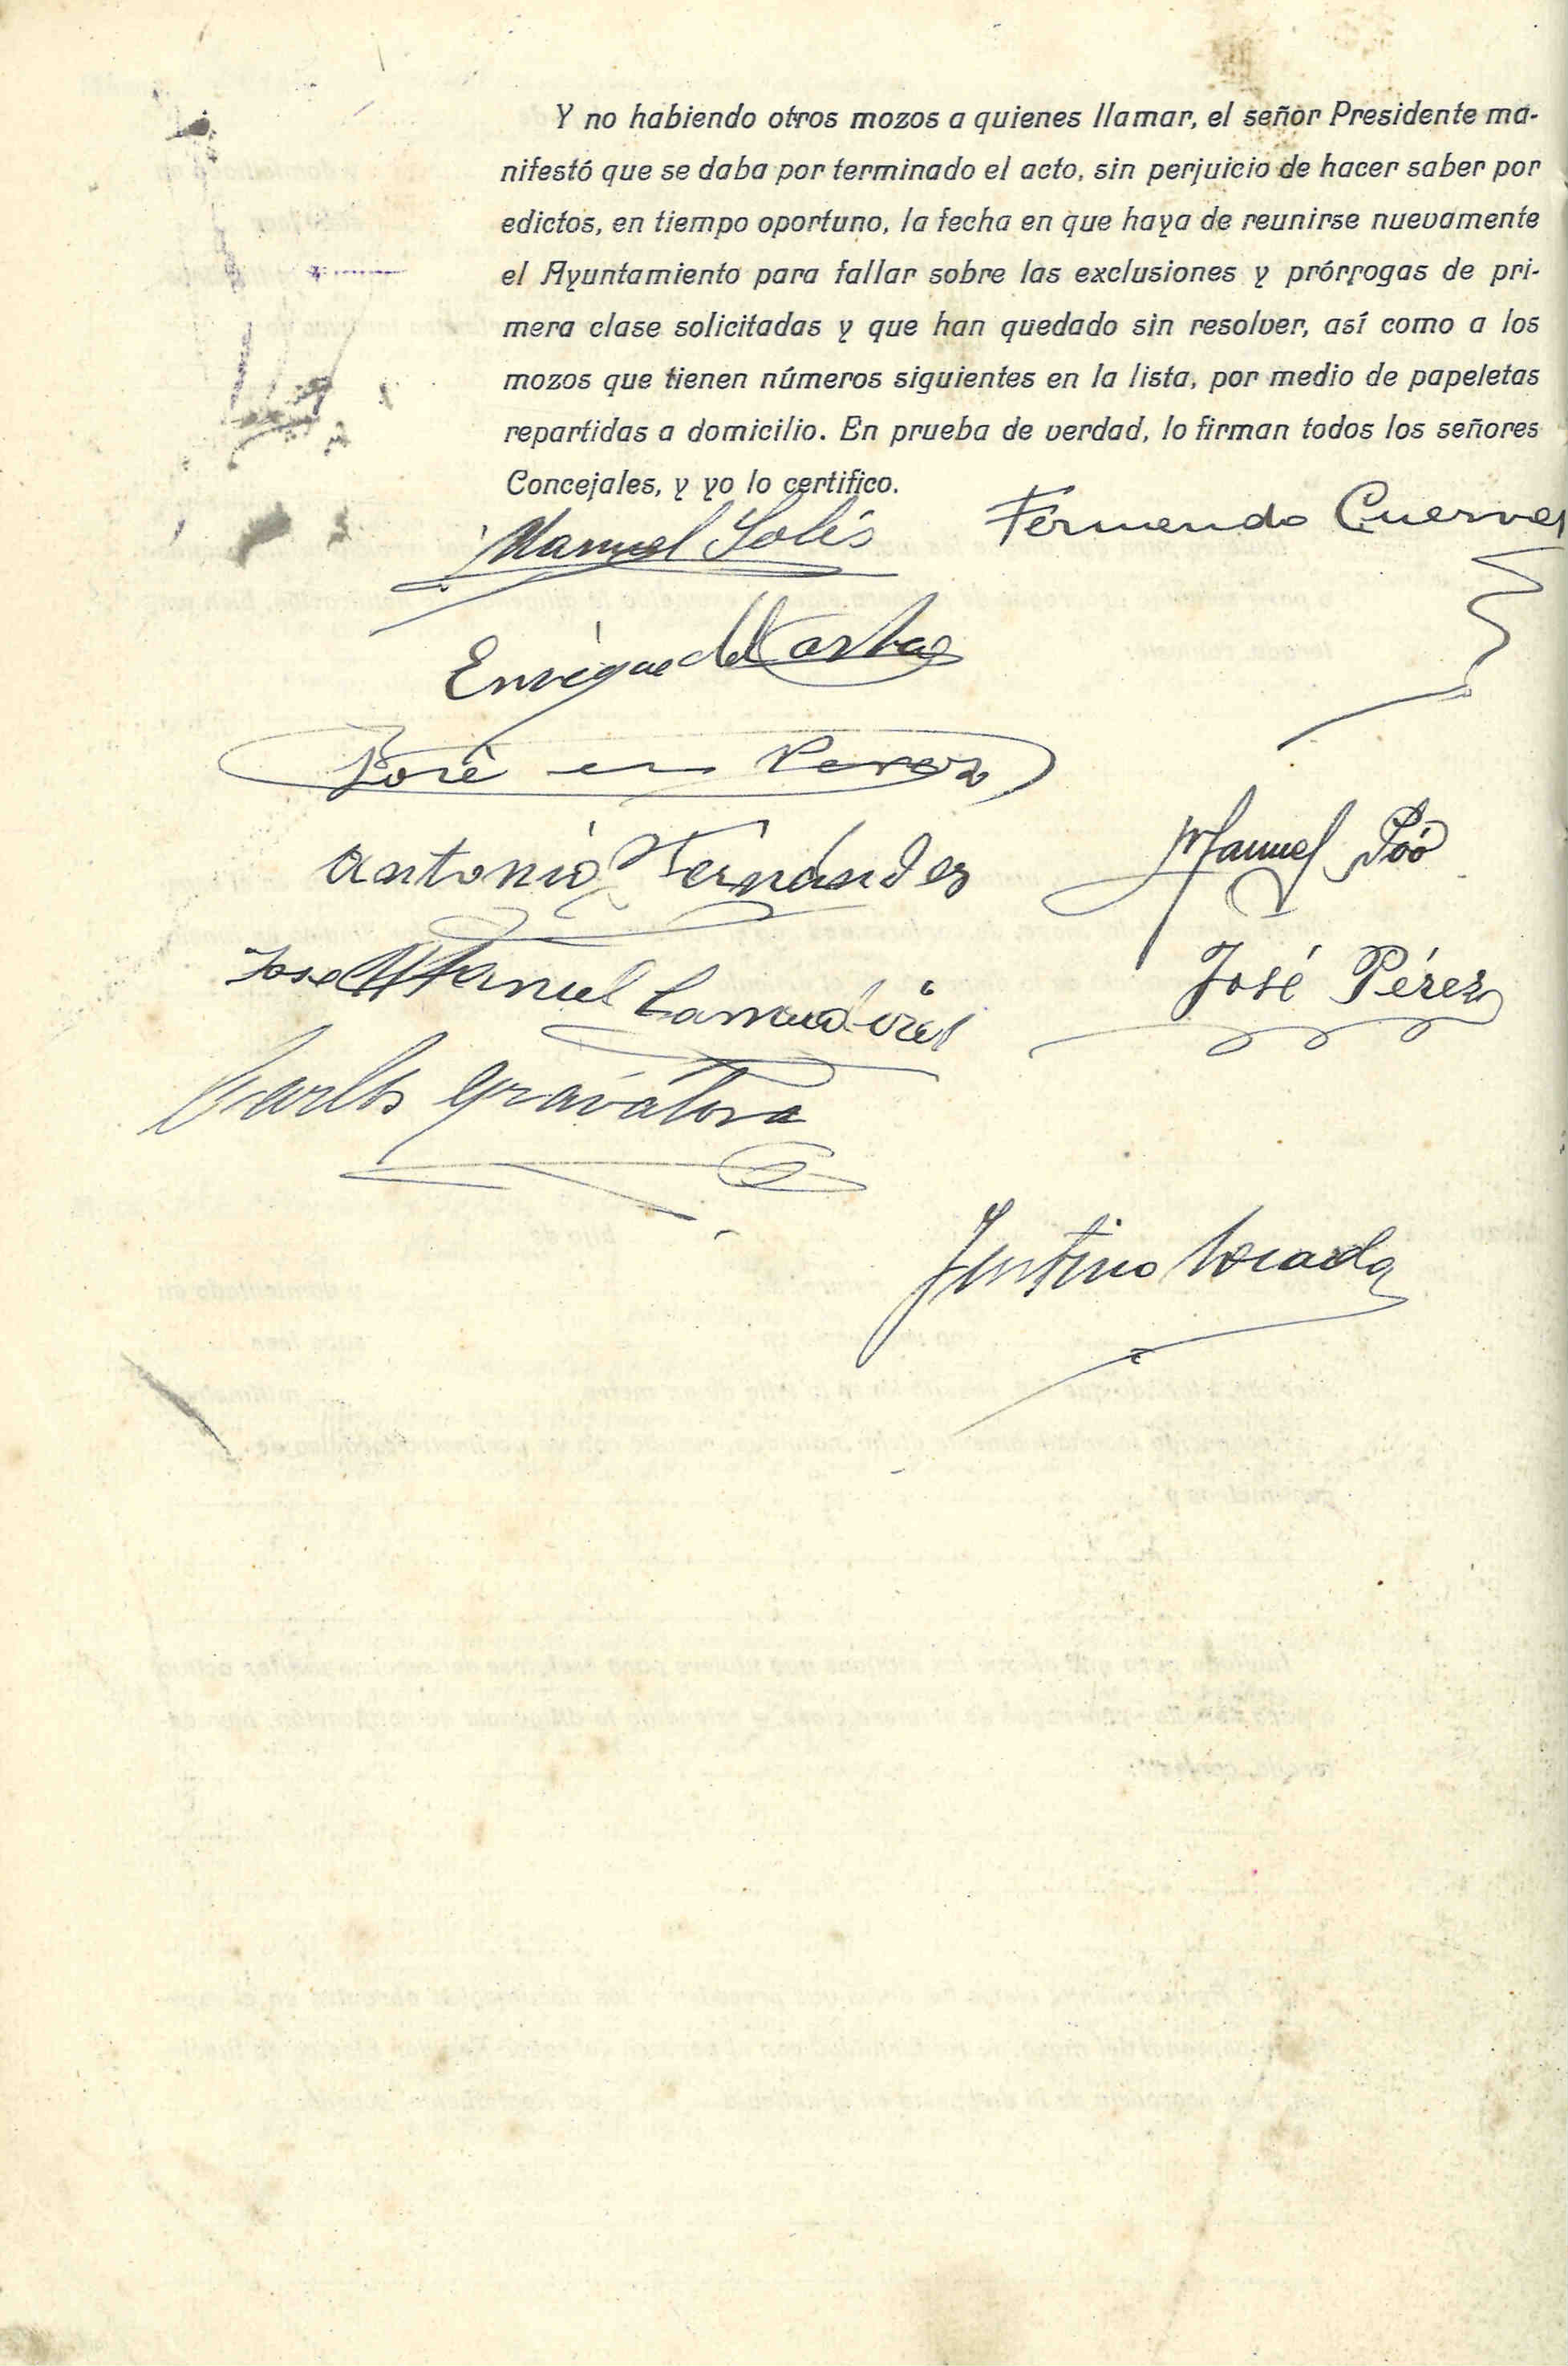 Y no habiendo otros mozos a quienes llamar, el señor Presidente ma-
nifestó que se daba por terminado el acto, sin perjuicio de hacer saber por
edictos, en tiempo oportuno, la fecha en que haya de reunirse nuevamente
el Ayuntamiento para fallar sobre las exclusiones y prórrogas de pri-
mera clase solicitadas y que han quedado sin resolver, así como a los
mozos que tienen números siguientes en la lista, por medio de papeletas
repartidas a domicilio. En prueba de verdad, lo firman todos los señores
Concejales, y yo lo certifico.
Manuel Solís
Fernando Cuervo
Enrique del
José Perez
Antonio Fernández
Manuel Póo
Jose Manuel
José Pérez
Carlos
Justino